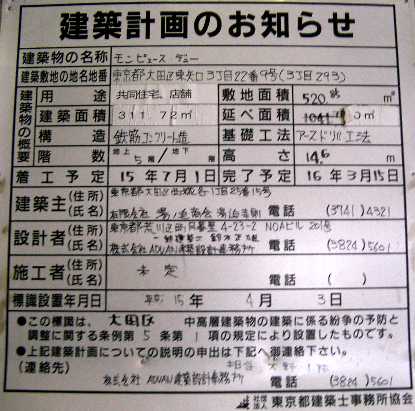 建築計画のお知らせ
建築物の名称 モンビュース デュー
建築敷地の地名地番 東京都大田区東矢口3丁目22番9号(3丁目293)
建築物の概要
用途 共同住宅、店舗 敷地面積 520. m²
建築面積 311.72 m² 延べ面積 1041 m²
構造 鉄筋コンクリート造 基礎工法 アースドリル工法
階数 地上 5階/地下 階 高さ 14.6 m
着工予定 15年7月1日 完了予定 16年3月15日
建築主 (住所) 東京都大田区 1丁目25番15号
(氏名) 有限会社 電話 (3741)4321
設計者 (住所) 東京都荒川区西日暮里4-23-2 NOAビル 201号
(氏名) 一級建築士
株式会社ADVAN建築設計事務所 電話 (3824)5601
施工者 (住所)
(氏名) 未定 電話 ( )
標識設置年月日 平成15年 4月 3日
●この標識は、大田区 中高層建築物の建築に係る紛争の予防と
調整に関する条例第5条第1項の規定により設置したものです。
●上記建築計画についての説明の申出は下記へ御連絡下さい。
(連絡先) 担当
株式会社ADVAN建築設計事務所 (3824)5601
社団法人 東京都建築士事務所協会